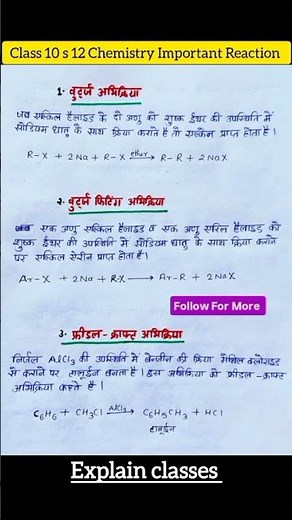 Class 10 s 12 Chemistry Important Reaction
1. वुर्ट्ज अभिक्रिया
जब एल्किल हैलाइड के दो अणु को शुष्क ईथर की उपस्थिति में
सोडियम धातु के साथ क्रिया कराते है तो एल्केन प्राप्त होता है।
R-X + 2Na + R-X ether→ R-R + 2NaX
2. वुर्ट्ज फिटिंग अभिक्रिया
जब एक अणु एल्किल हैलाइड व एक अणु एरिल हैलाइड को
शुष्क ईथर की उपस्थिति में सोडियम धातु के साथ क्रिया कराने
पर एल्किल ऐरीन प्राप्त होता है।
Ar-X + 2Na + R-X → Ar-R + 2NaX
Follow For More
3. फ्रीडल-क्राफ्ट अभिक्रिया
निर्जल AlCl3 की उपस्थिति में बेन्जीन की क्रिया मेथिल क्लोराइड
से कराने पर टालूईन बनता है। इस अभिक्रिया को फ्रीडल-क्राफ्ट
अभिक्रिया कहते है।
C6H6 + CH3Cl AlCl3→ C6H5CH3 + HCl
टालूईन
Explain classes